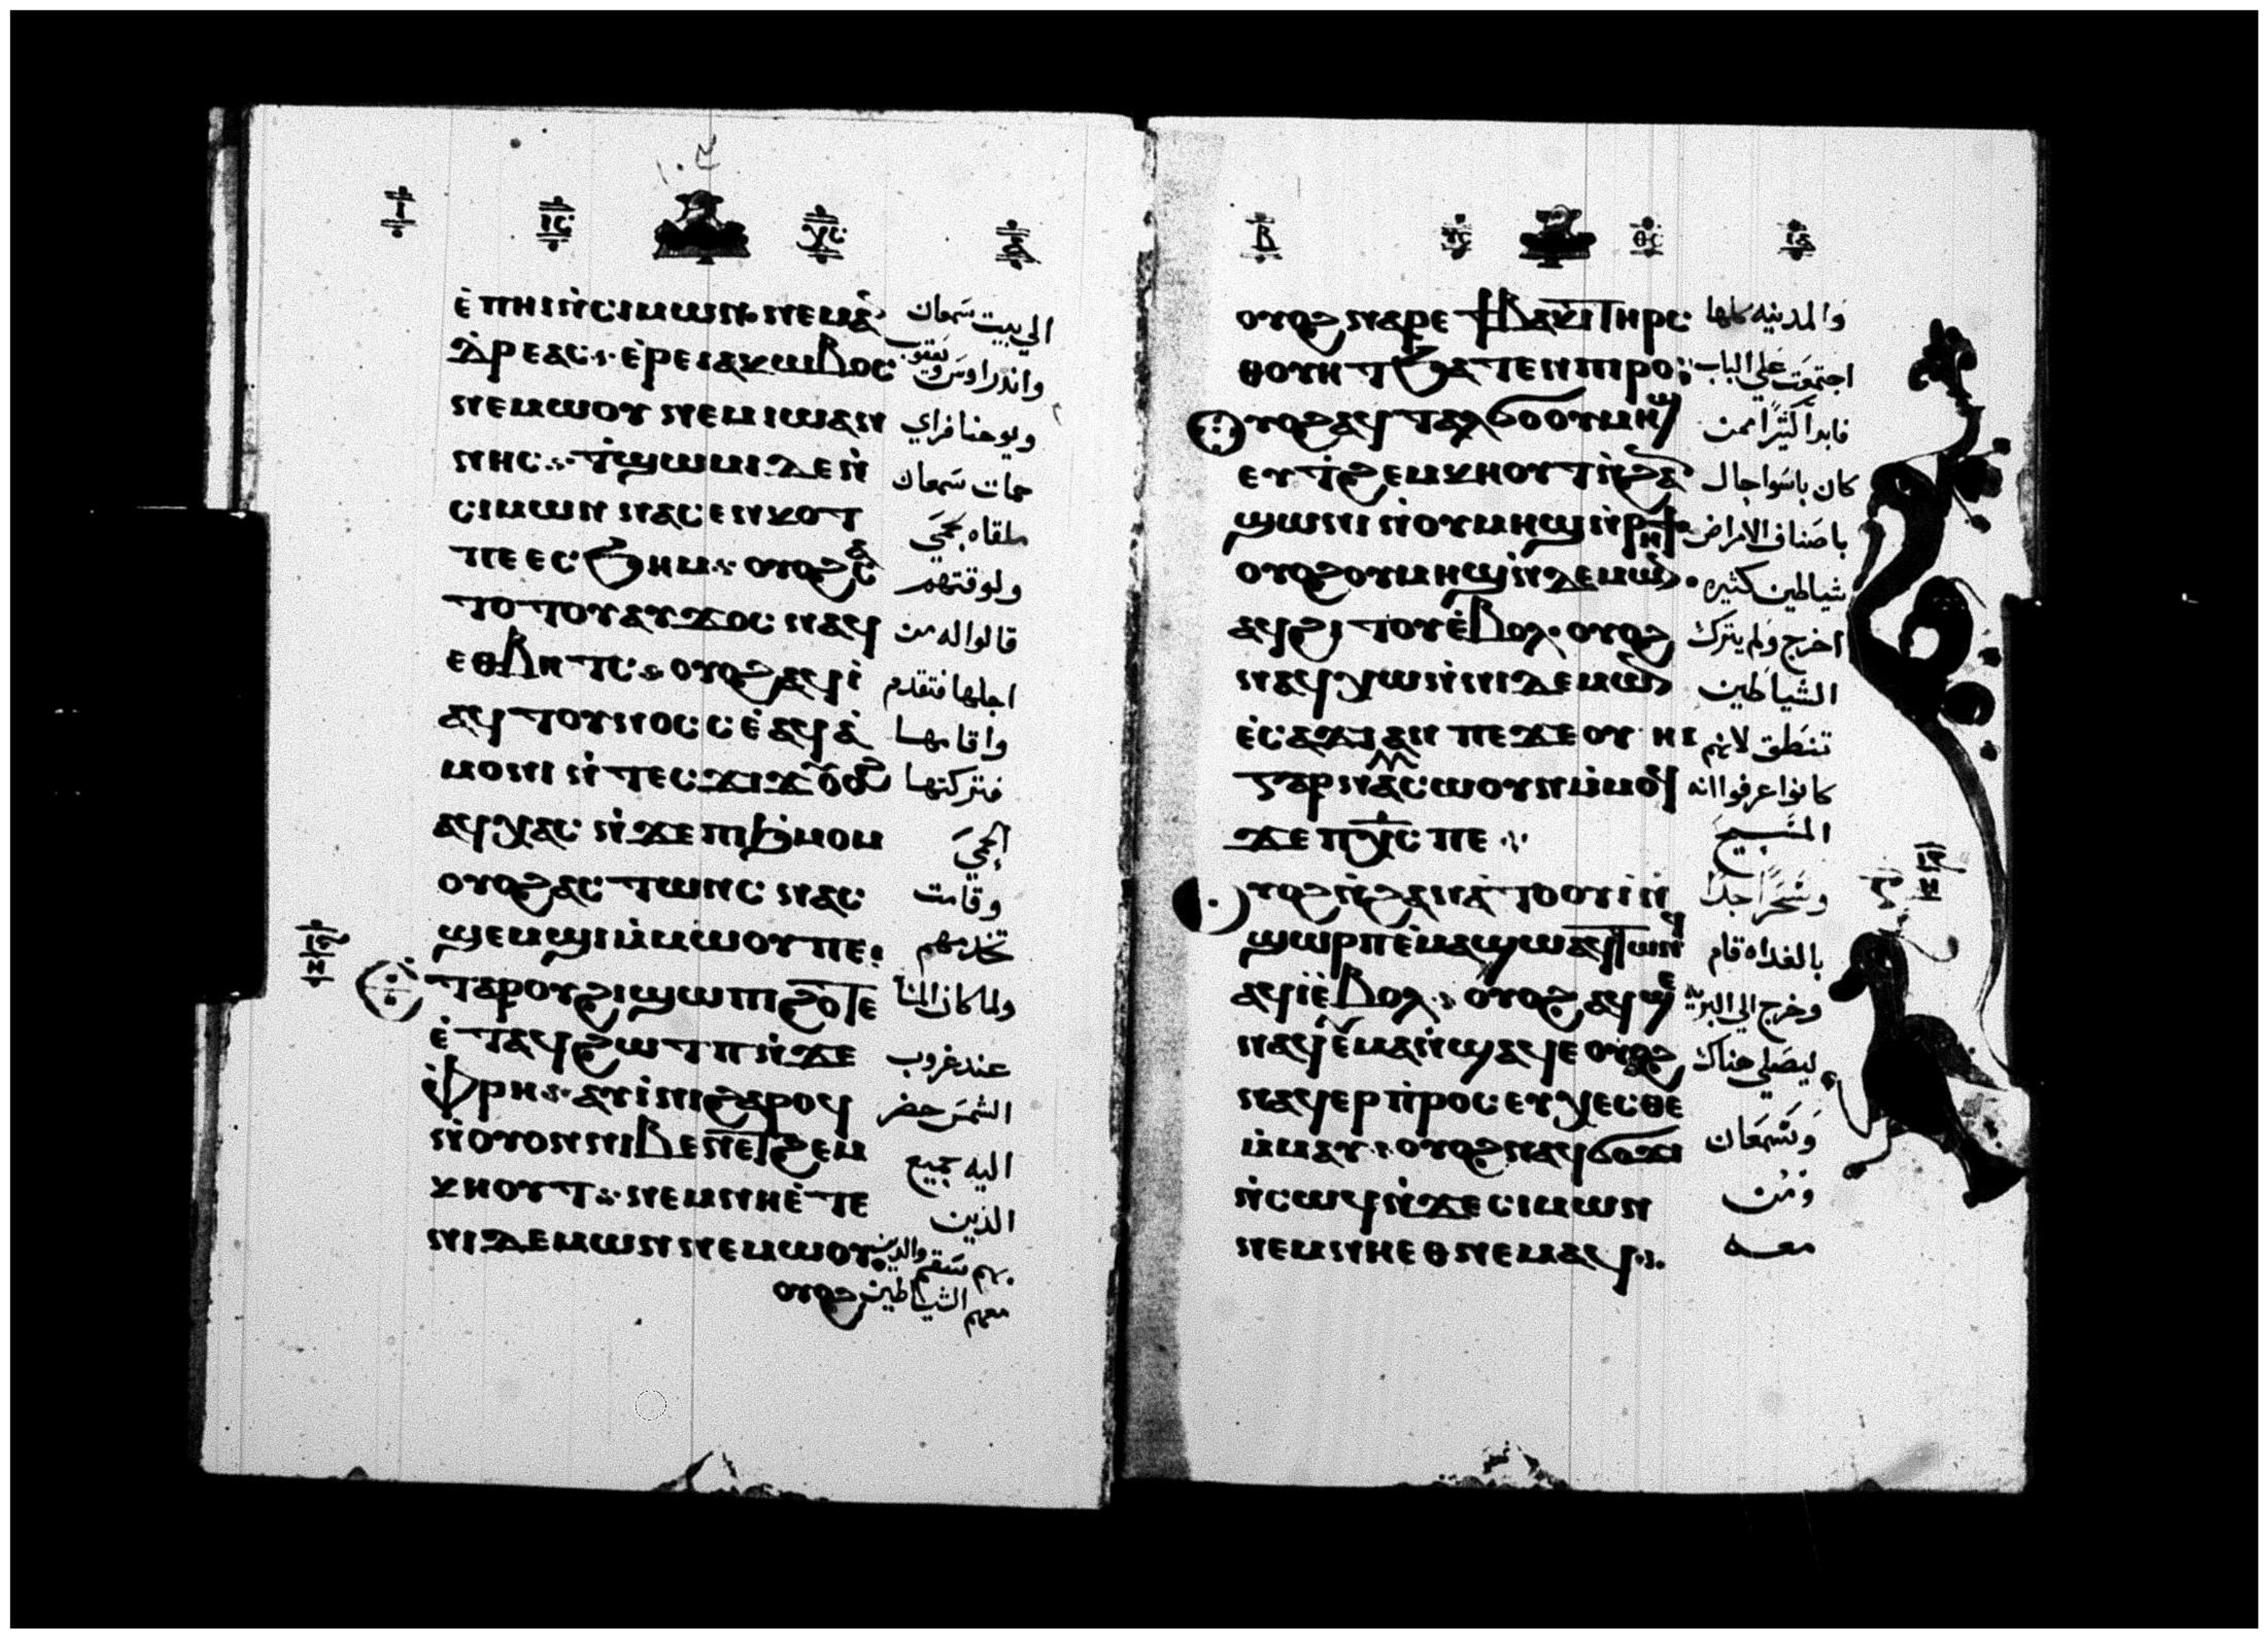 ⲓ ⲓⲥ ⲭⲥ ⲁ
ⲉ̀ⲡⲏⲓ ⲛ̀ⲥⲓⲙⲱⲛ ⲛⲉⲙ ⲁⲛ
الي بيت سمعان
ⲇⲣⲉⲁⲥ ⲉ̀ⲣⲉ ⲓⲁⲕⲱⲃⲟⲥ
واندراوس ويعقوب
ⲛⲉⲙⲱⲟⲩ ⲛⲉⲙ ⲓⲱⲁⲛ
ويوحنا فراي
ⲛⲏⲥ ⲧ̀ϣⲱⲙⲓ ⲇⲉ ⲛ̀
حمات سمعان
ⲥⲓⲙⲱⲛ ⲛⲁⲥⲉⲛⲕⲟⲧ
ملقاه بحمي
ⲡⲉ ⲉⲥϧⲏⲙ ⲟⲩⲟϩ ⲥⲁ
ولوقتهم
ⲧⲟⲧⲟⲩ ⲁⲩϫⲟⲥ ⲛⲁϥ
قالوا له من
ⲉⲑⲃⲏⲧⲥ ⲟⲩⲟϩ ⲁϥⲓ̀
اجلها فتقدم
ⲁϥⲧⲟⲩⲛⲟⲥⲥ ⲉ̀ⲁϥⲁ̀
واقامها
ⲙⲟⲛⲓ ⲛ̀ⲧⲉⲥϫⲓϫ ⲟⲩⲟϩ
فتركتها
ⲁϥⲭⲁⲥ ⲛ̀ϫⲉ ⲡⲓϧⲙⲟⲙ
الحمي
ⲟⲩⲟϩ ⲁⲥⲧⲱⲛⲥ ⲛⲁⲥ
وقامت
ϣⲉⲙϣⲓ ⲙ̀ⲙⲱⲟⲩ ⲡⲉ
تخدمهم
ⲉⲧⲁ ⲣⲟⲩϩⲓ ϣⲱⲡⲓ ϩⲟⲧⲉ
ولما كان المسا
ⲉ̀ⲧⲁϥϩⲱⲧⲡ ⲛ̀ϫⲉ
عند غروب
ⲫ̀ⲣⲏ ⲁⲩⲓ̀ⲛⲓ ϩⲁⲣⲟϥ
الشمس حضر
ⲛ̀ⲟⲩⲟⲛ ⲛⲓⲃⲉⲛ ⲉⲧϩⲉⲙ
اليه جميع
ⲕⲏⲟⲩⲧ ⲛⲉⲙ ⲛⲏ ⲉ̀ⲧⲉ
الذين
ⲛⲓⲇⲉⲙⲱⲛ ⲛⲉⲙⲱⲟⲩ
بهم سقم والذين
ⲟⲩⲟϩ
معهم الشياطين
ⲃ ⲩⲥ ⲑⲥ ⲓⲁ
ⲟⲩⲟϩ ⲛⲁⲣⲉ ϯⲃⲁⲕⲓ ⲧⲏⲣⲥ
والمدينه كلها
ⲑⲟⲩⲏⲧ ϧⲁⲧⲉⲛ ⲡⲓⲣⲟ
اجتمعت علي الباب
ⲟⲩⲟϩ ⲁϥⲧⲁⲗϭⲟ ⲟⲩⲙⲏϣ
فابرا كثيرا ممن
ⲉⲩⲧ̀ϩⲉⲙⲕⲏⲟⲩⲧ ⲛ̀ϩⲁⲛ
كان باسوا حال
ϣⲱⲛⲓ ⲛ̀ⲟⲩⲙⲏϣ ⲛ̀ⲣⲏϯ
باصناف الامراض
ⲟⲩⲟϩ ⲟⲩⲙⲏϣ ⲛ̀ⲇⲉⲙⲱⲛ
شياطين كثيره
ⲁϥϩⲓⲧⲟⲩ ⲉ̀ⲃⲟⲗ ⲟⲩⲟϩ
اخرج ولم يترك
ⲛⲁϥⲭⲱ ⲛ̀ⲛⲓⲇⲉⲙⲱⲛ
الشياطين
ⲉ̀ⲥⲁϫⲓ ⲁⲛ ⲡⲉ ϫⲉ ⲟⲩⲏⲓ
تنطق لانهم
ⲅⲁⲣ ⲛⲁⲥⲱⲟⲩⲛ ⲙ̀ⲙⲟϥ
كانوا عرفوا انه
ϫⲉ ⲡⲭ̅ⲥ ⲡⲉ
المسيح
ⲟⲩⲟϩ ⲛ̀ϩⲁⲛⲁ̀ⲧⲟⲟⲩⲓ̀ ⲛ̀
وسحرا جدا
ϣⲱⲣⲡ ⲉ̀ⲙⲁϣⲱ ⲁϥⲧⲱⲛϥ
بالغداه قام
ⲁϥⲓ̀ ⲉ̀ⲃⲟⲗ ⲟⲩⲟϩ ⲁϥϣⲉ
وخرج الي البريه
ⲛⲁϥ ⲉ̀ⲙⲁ ⲛ̀ϣⲁϥⲉ ⲟⲩⲟϩ
ليصلي هناك
ⲛⲁϥⲉⲣⲡ̀ⲣⲟⲥⲉⲩⲭⲉⲥⲑⲉ
ⲙ̀ⲙⲁⲩ ⲟⲩⲟϩ ⲛⲁϥϭⲟϫⲓ
وسمعان
ⲛ̀ⲥⲱϥ ⲛ̀ϫⲉ ⲥⲓⲙⲱⲛ
ومن
ⲛⲉⲙ ⲛⲏ ⲉⲑⲛⲉⲙⲁϥ
معه